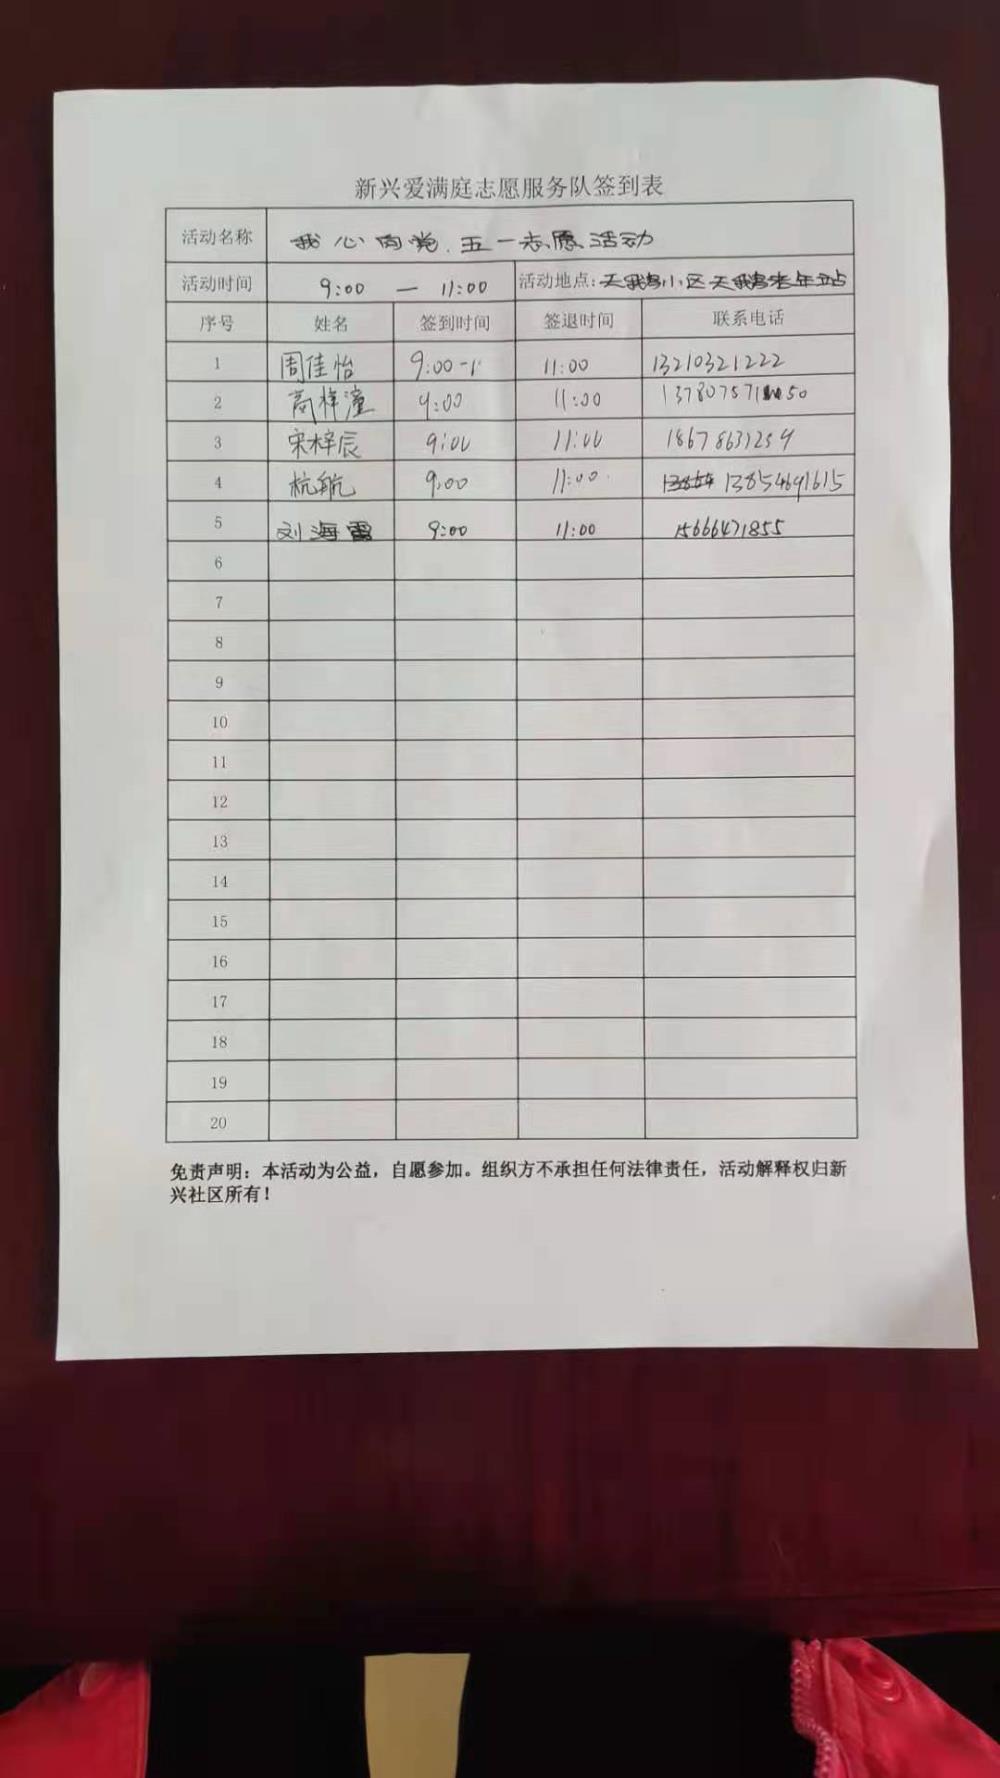 新兴爱满庭志愿服务队签到表
活动名称 我心向党.五一志愿活动
活动时间 9:00 — 11:00 活动地点:天鹅湖小区天鹅老年站
序号 姓名 签到时间 签退时间 联系电话
1 周佳怡 9:00 11:00 13210321222
2 高梓潼 9:00 11:00 50
3 宋梓辰 9:00 11:00 18678631259
4 杭航 9:00 11:00 13854691615
5 刘海霞 9:00 11:00 15666471855
6
7
8
9
10
11
12
13
14
15
16
17
18
19
20
免责声明：本活动为公益，自愿参加。组织方不承担任何法律责任，活动解释权归新
兴社区所有！